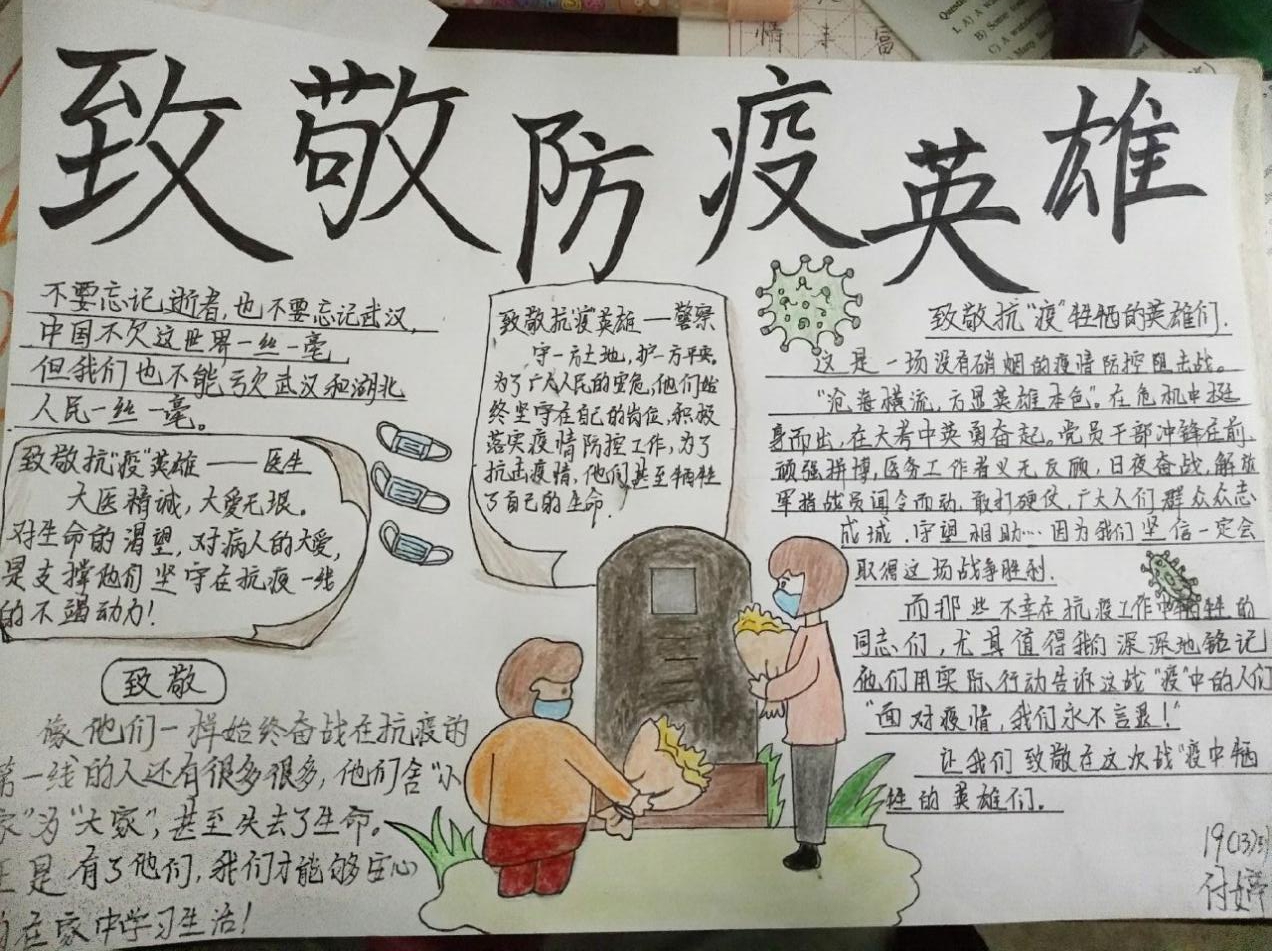 致敬防疫英雄
不要忘记逝者,也不要忘记武汉,
中国不欠这世界一丝一毫
但我们也不能亏欠武汉和湖北
人民一丝一毫。
致敬抗"疫"英雄——医生
大医精诚,大爱无垠。
对生命的渴望,对病人的大爱,
是支撑他们坚守在抗疫一线
的不竭动力!
致敬
像他们一样始终奋战在抗疫的
第一线的人还有很多很多,他们舍"小
家"为"大家",甚至失去了生命。
正是有了他们,我们才能够安心
的在家中学习生活!
致敬抗"疫"英雄——警察
守一方土地,护一方平安。
为了广大人民的安危,他们始
终坚守在自己的岗位,积极
落实疫情防控工作,为了
抗击疫情,他们甚至牺牲
了自己的生命!
致敬抗"疫"牲牺的英雄们.
这是一场没有硝烟的疫情防控阻击战。
"沧海横流,方显英雄本色"。在危机中挺
身而出,在大考中英勇奋起。党员干部冲锋在前,
顽强拼搏,医务工作者义无反顾,日夜奋战,解放
军指战员闻令而动,敢打硬仗,广大人们群众众志
成城,守望相助…因为我们坚信一定会
取得这场战争胜利.
而那些不幸在抗疫工作中牺牲的
同志们,尤其值得我们深深地铭记
他们用实际行动告诉这战"疫"中的人们
"面对疫情,我们永不言退!"
让我们致敬在这次战"疫中牺
牲的英雄们。
19(13)
付婷
情 丰 富